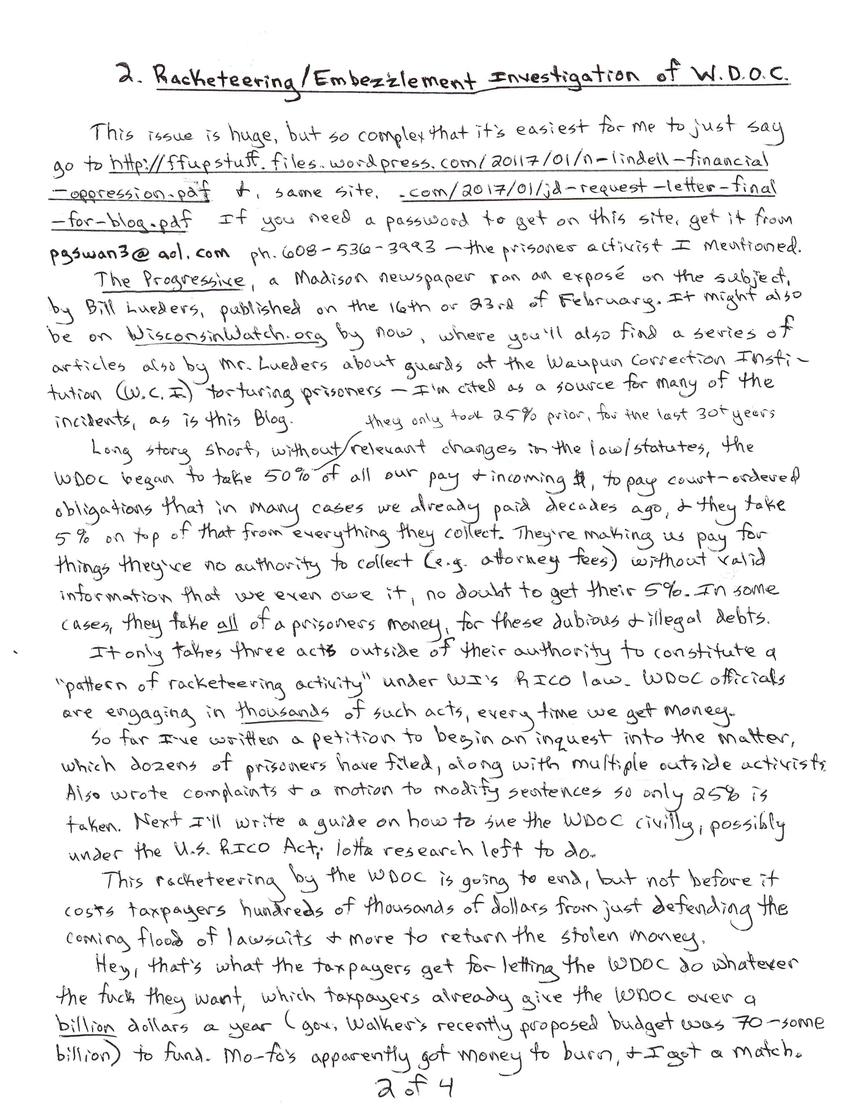 2. Racketeering/Embezzlement Investigation of W.D.O.C.
This issue is huge, but so complex that it's easiest for me to just say
go to http://ffupstuff.files.wordpress.com/20117/01/n-lindell-financial
-oppression.pdf +, same site, .com/2017/01/jd-request-letter-final
-for-blog.pdf If you need a password to get on this site, get it from
pgswan3@aol.com ph. 608-536-3993 - the prisoner activist I mentioned.
The Progressive, a Madison newspaper ran an exposé on the subject,
by Bill Lueders, published on the 16th or 23rd of February. It might also
be on WisconsinWatch.org by now, where you'll also find a series of
articles also by Mr. Lueders about guards at the Waupun Correction Insti-
tution (W.C.I) torturing prisoners - I'm cited as a source for many of the
incidents, as is this Blog.
they only took 25% prior, for the last 30+ years
Long story short, without relevant changes in the law/statutes, the
WDOC began to take 50% of all our pay + incoming $, to pay court-ordered
obligations that in many cases we already paid decades ago, + they take
5% on top of that from everything they collect. They're making us pay for
things they've no authority to collect (e.g. attorney fees) without valid
information that we even owe it, no doubt to get their 5%. In some
cases, they take all of a prisoners money, for these dubious + illegal debts.
It only takes three acts outside of their authority to constitute a
"pattern of racketeering activity" under WI's RICO law. WDOC officials
are engaging in thousands of such acts, every time we get money.
So far I've written a petition to begin an inquest into the matter,
which dozens of prisoners have filed, along with multiple outside activists.
Also wrote complaints + a motion to modify sentences so only 25% is
taken. Next I'll write a guide on how to sue the WDOC civilly, possibly
under the U.S. RICO Act; lotta research left to do.
This racketeering by the WDOC is going to end, but not before it
costs taxpayers hundreds of thousands of dollars from just defending the
coming flood of lawsuits + more to return the stolen money.
Hey, that's what the taxpayers get for letting the WDOC do whatever
the fuck they want, which taxpayers already give the WDOC over a
billion dollars a year (gov. Walker's recently proposed budget was 70-some
billion) to fund. Mo-fo's apparently got money to burn, + I got a match.
2 of 4